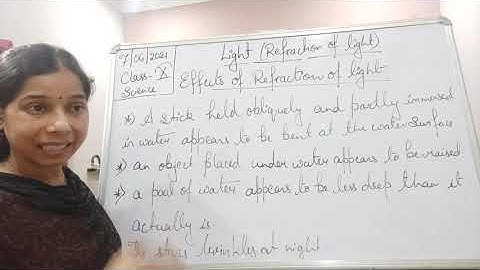 7/06/2021
Class-X
Science
Light (Refraction of light)
Effects of Refraction of light
*) A stick held obliquely and partly immersed
in water appears to be bent at the water surface
*) an object placed under water appears to be raised.
*) a pool of water appears to be less deep than it
actually is.
The stars twinkles at night